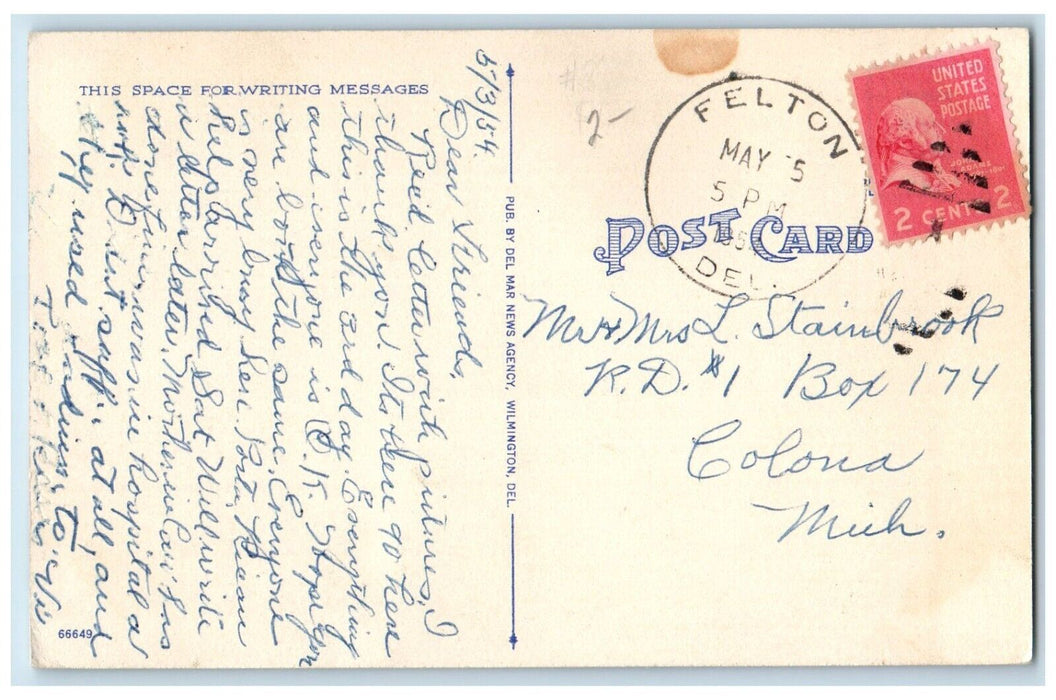 THIS SPACE FOR WRITING MESSAGES
5/3/54
Dear Friends,
Recd letter with pictures, I
thank you! Its been 90 here
this is the 3rd day. Everything
and everyone is O.K. Hope you
are both the same. Everyone
is very busy here.
Sat Will write
a letter later. Mother in law's
in hospital
now. Dist supt. at all, and
they used
66649
PUB. BY DEL MAR NEWS AGENCY, WILMINGTON, DEL.
2-
FELTON
MAY 5
5 PM
DEL.
UNITED
STATES
POSTAGE
2 CENTS 2
POST CARD
Mr & Mrs L. Stainbrook
R.D. #1 Box 174
Coloma
Mich.